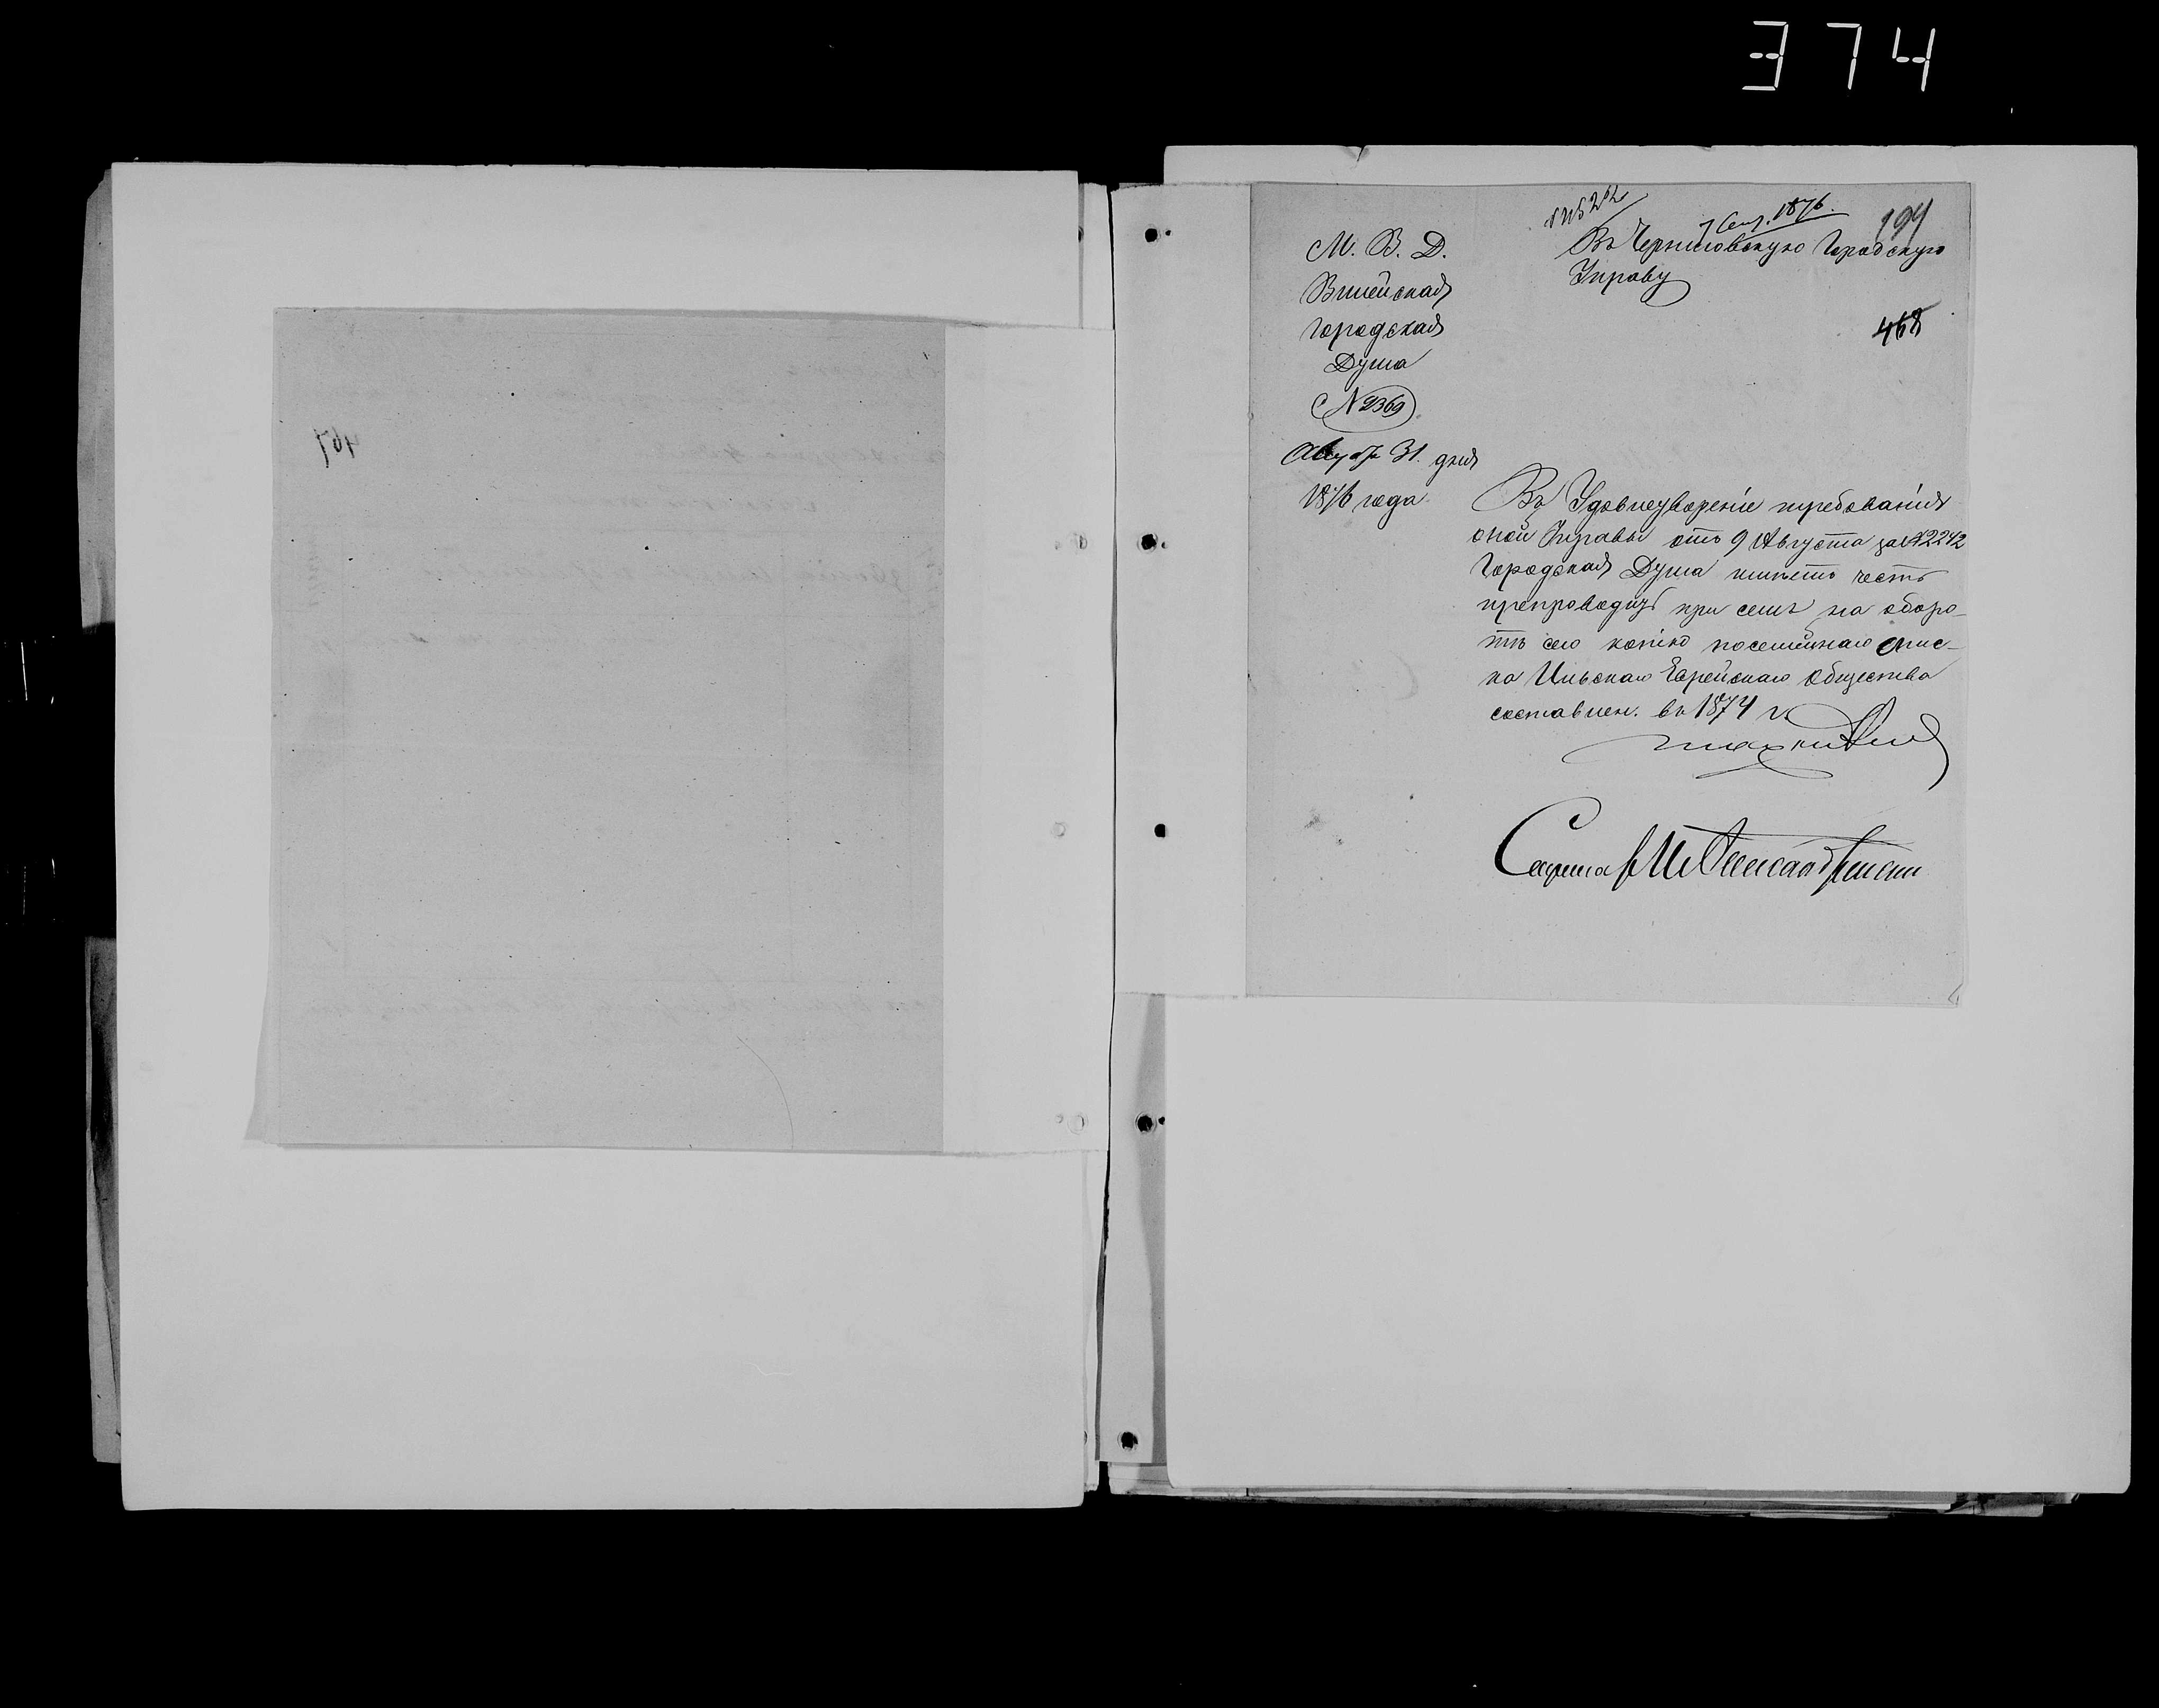 374
467
7 Сент. 1876.
194
М. В. Д.
Вилейская
Городская
Дума
№ 2369
Августа 31. дня
1876 года
Въ Черниговскую Городскую
Управу
468
Въ Удовлетвореніе требованія
оной Управы отъ 9 Августа за № 2242
Городская Дума имѣетъ честь
препроводить при семъ на оборо-
тѣ сего копію посемейнаго спис-
ка Ильскаго Еврейскаго Общества
составлен. въ 1874 г.